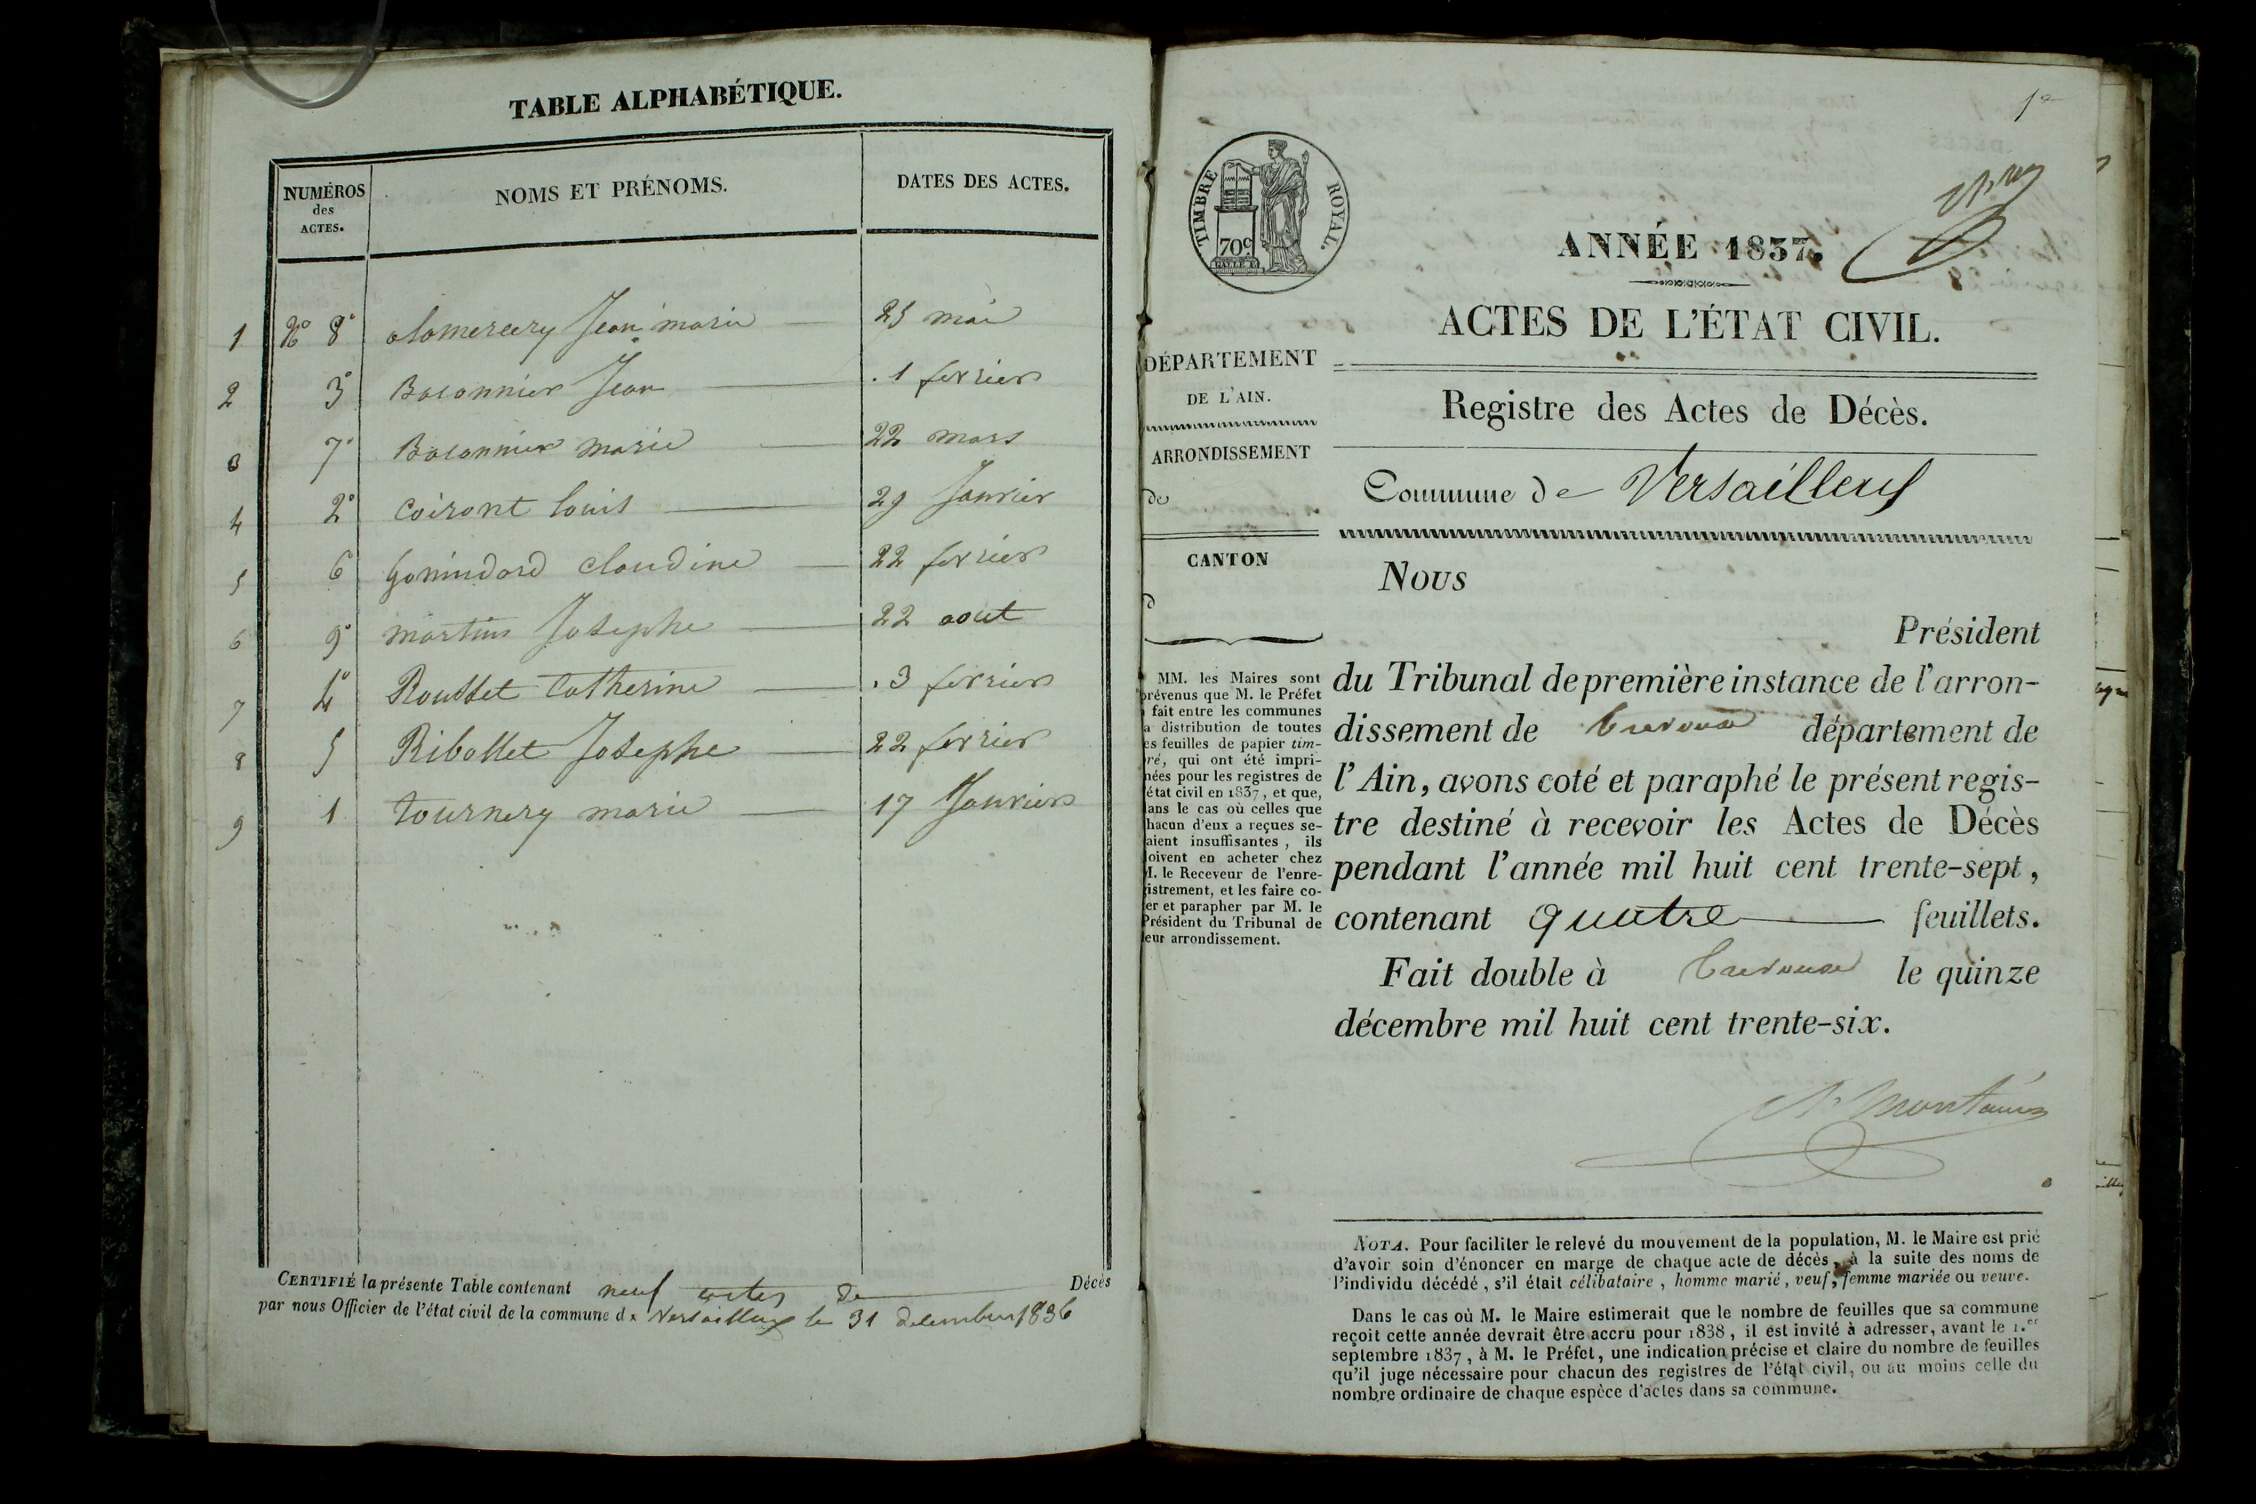 TABLE ALPHABÉTIQUE.
NUMÉROS
des
ACTES.
NOMS ET PRÉNOMS.
DATES DES ACTES.
1 No 8° alamercery Jean marie 25 mai
2 3° Baconnier Jean 1 fevrier
3 7° Baconnier marie 22 mars
4 2° Coiront louis 29 Janvier
5 6 Gonindard claudine 22 fevrier
6 9° martin Josephe 22 aout
7 4° Rousset Catherine 3 fevrier
8 5 Ribollet Josephe 22 fevrier
9 1 tournery marie 17 Janvier
CERTIFIÉ la présente Table contenant neuf actes de Décès
par nous Officier de l'état civil de la commune de Versailleux le 31 decembre 1836
TIMBRE ROYAL.
70c
ANNÉE 1837.
ACTES DE L'ÉTAT CIVIL.
DÉPARTEMENT
DE L'AIN.
ARRONDISSEMENT
de
CANTON
d
MM. les Maires sont
prévenus que M. le Préfet
fait entre les communes
a distribution de toutes
es feuilles de papier tim-
ré, qui ont été impri-
mées pour les registres de
état civil en 1837, et que,
ans le cas où celles que
hacun d'eux a reçues se-
aient insuffisantes, ils
oivent en acheter chez
M. le Receveur de l'enre-
istrement, et les faire co-
er et parapher par M. le
Président du Tribunal de
eur arrondissement.
Registre des Actes de Décès.
Commune de Versailleux
Nous
Président
du Tribunal de première instance de l'arron-
dissement de Trevoux département de
l'Ain, avons coté et paraphé le présent regis-
tre destiné à recevoir les Actes de Décès
pendant l'année mil huit cent trente-sept,
contenant quatre feuillets.
Fait double à Trevoux le quinze
décembre mil huit cent trente-six.
NOTA. Pour faciliter le relevé du mouvement de la population, M. le Maire est prié
d'avoir soin d'énoncer en marge de chaque acte de décès, à la suite des noms de
l'individu décédé, s'il était célibataire, homme marié, veuf, femme mariée ou veuve.
Dans le cas où M. le Maire estimerait que le nombre de feuilles que sa commune
reçoit cette année devrait être accru pour 1838, il est invité à adresser, avant le 1.er
septembre 1837, à M. le Préfet, une indication précise et claire du nombre de feuilles
qu'il juge nécessaire pour chacun des registres de l'état civil, ou au moins celle du
nombre ordinaire de chaque espèce d'actes dans sa commune.